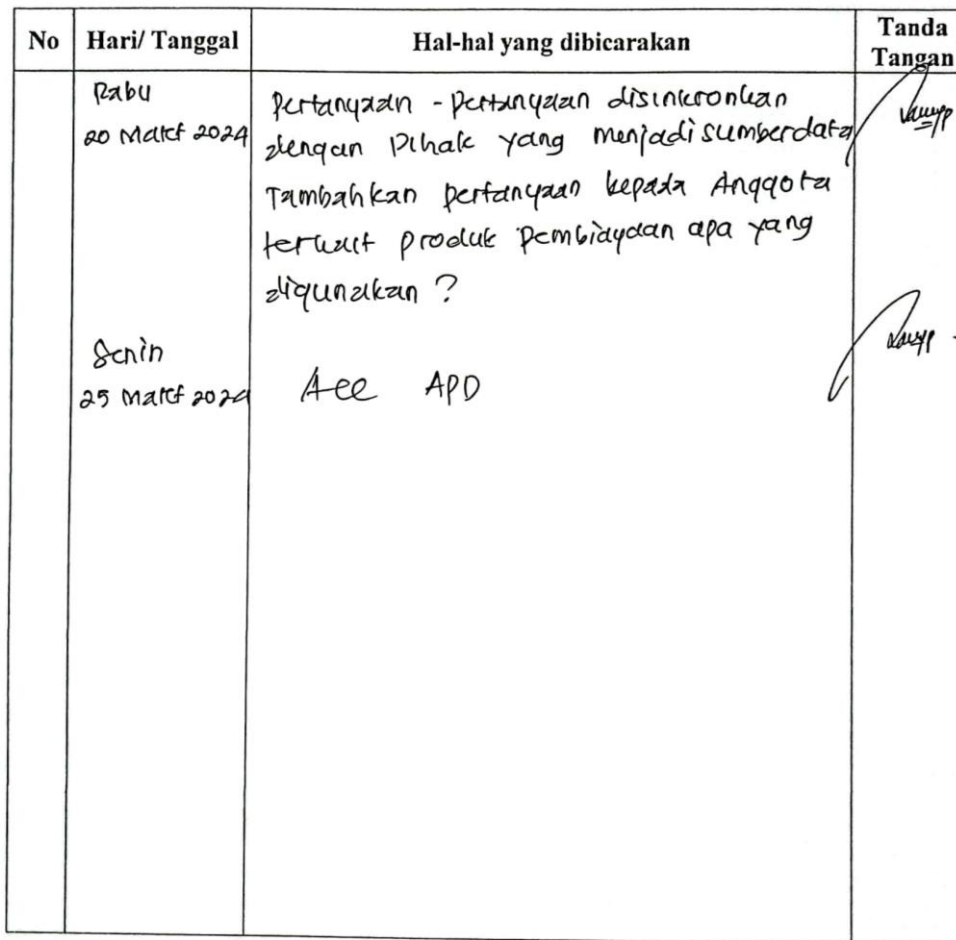 No Hari/ Tanggal Hal-hal yang dibicarakan Tanda Tangan
Rabu
20 Maret 2024
Pertanyaan - pertanyaan disinkronkan
dengan Pihak yang menjadi sumber data
Tambahkan pertanyaan kepada Anggota
terkait produk Pembiayaan apa yang
digunakan ?
Senin
25 Maret 2024
Acc APD